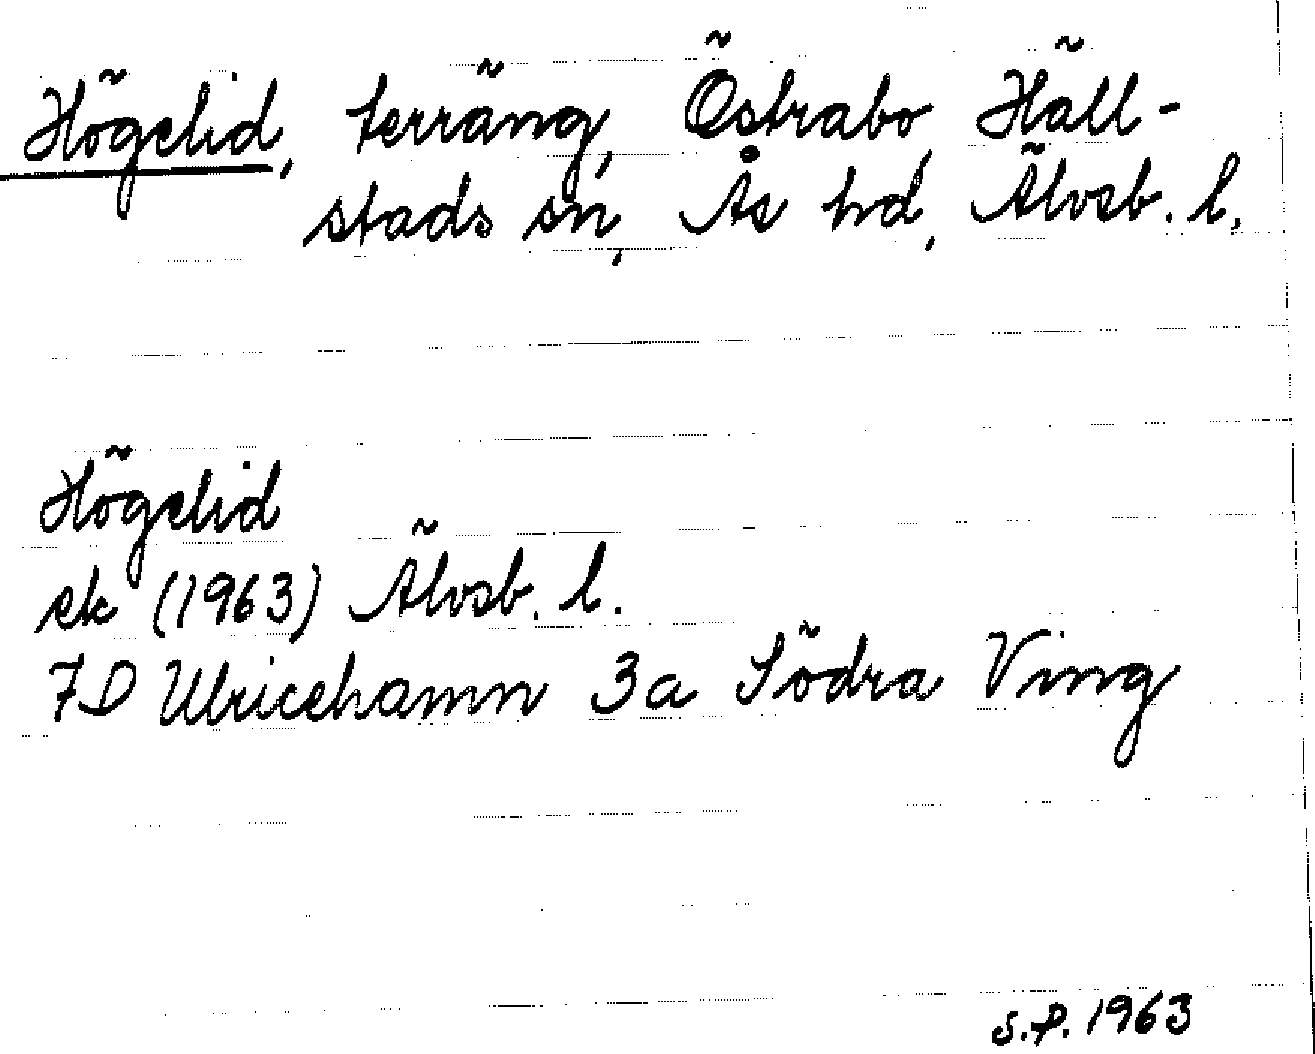 Högelid, terräng, Östrabo, Häll-
stads sn, Ås hd, Älvsb. l.
Högelid
ek (1963) Älvsb. l.
7D Ulricehamn 3a Södra Ving
S.P. 1963